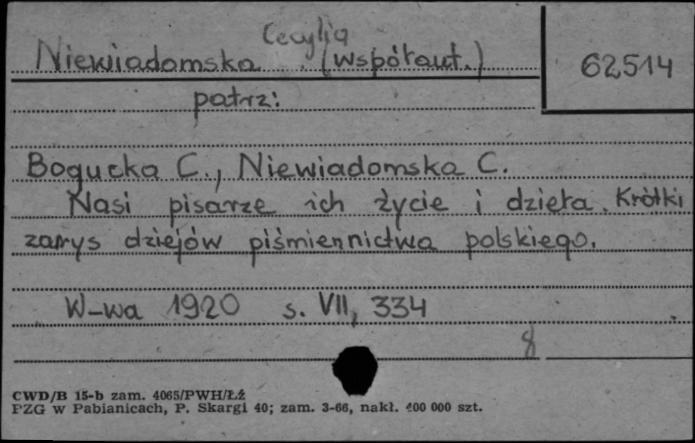 Cecylia
Niewiadomska (współaut.) 62514
patrz:
Bogucka C., Niewiadomska C.
Nasi pisarze ich życie i dzieła. Krótki
zarys dziejów piśmiennictwa polskiego.
W-wa 1920 s. VII, 334
8
CWD/B 15-b zam. 4065/PWH/Łź
PZG w Pabianicach, P. Skargi 40; zam. 3-66, nakł. 400 000 szt.